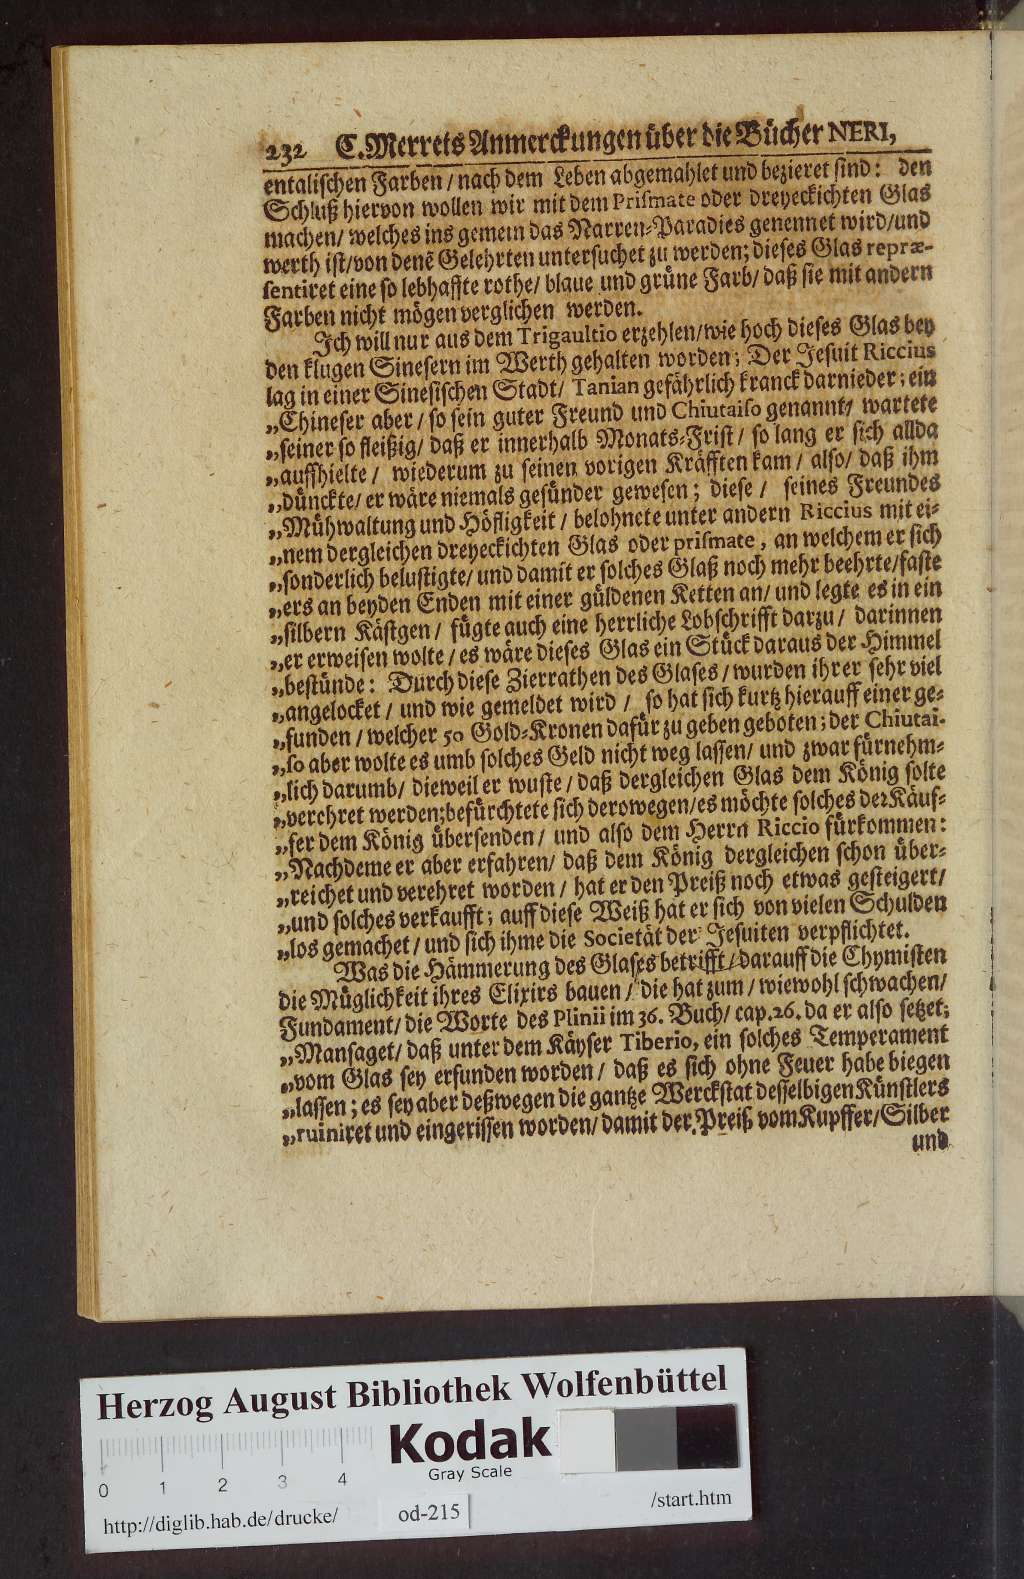 232 C. Merrets Anmerckungen über die Bücher NERI,
entalischen Farben / nach dem Leben abgemahlet und bezieret sind: den
Schluß hiervon wollen wir mit dem Prismate oder dreyeckichten Glas
machen/ welches ins gemein das Narren-Paradies genennet wird/und
werth ist/von denẽ Gelehrten untersuchet zu werden; dieses Glas repræ-
sentiret eine so lebhaffte rothe/ blaue und grüne Farb/ daß sie mit andern
Farben nicht mögen verglichen werden.
Ich will nur aus dem Trigaultio erzehlen/wie hoch dieses Glas bey
den klugen Sinesern im Werth gehalten worden; Der Jesuit Riccius
lag in einer Sinesischen Stadt/ Tanian gefährlich kranck darnieder; ein
„Chineser aber / so sein guter Freund und Chiutaiso genannt/ wartete
„seiner so fleißig/ daß er innerhalb Monats-Frist / so lang er sich allda
„auffhielte / wiederum zu seinen vorigen Kräfften kam / also/ daß ihm
„dünckte/ er wäre niemals gesünder gewesen; diese / seines Freundes
„Mühwaltung und Höfligkeit / belohnete unter andern Riccius mit ei-
„nem dergleichen dreyeckichten Glas oder prismate, an welchem er sich
„sonderlich belustigte/ und damit er solches Glaß noch mehr beehrte/faste
„ers an beyden Enden mit einer güldenen Ketten an/ und legte es in ein
„silbern Kästgen / fügte auch eine herrliche Lobschrifft darzu / darinnen
„er erweisen wolte / es wäre dieses Glas ein Stück daraus der Himmel
„bestünde: Durch diese Zierrathen des Glases / wurden ihrer sehr viel
„angelocket / und wie gemeldet wird / so hat sich kurtz hierauff einer ge-
„funden / welcher 50 Gold-Kronen dafür zu geben geboten; der Chiutai-
„so aber wolte es umb solches Geld nicht weg lassen/ und zwar fürnehm-
„lich darumb/ dieweil er wuste / daß dergleichen Glas dem König solte
„verehret werden;befürchtete sich derowegen/es möchte solches der Käuf-
„fer dem König übersenden / und also dem Herrn Riccio fürkommen:
„Nachdeme er aber erfahren/ daß dem König dergleichen schon über-
„reichet und verehret worden / hat er den Preiß noch etwas gesteigert/
„und solches verkaufft; auff diese Weiß hat er sich von vielen Schulden
„los gemachet / und sich ihme die Societät der Jesuiten verpflichtet.
Was die Hämmerung des Glases betrifft / darauff die Chymisten
die Müglichkeit ihres Elixirs bauen / die hat zum / wiewohl schwachen/
Fundament/ die Worte des Plinii im 36. Buch/ cap. 26. da er also setzet;
„Man saget/ daß unter dem Käyser Tiberio, ein solches Temperament
„vom Glas sey erfunden worden / daß es sich ohne Feuer habe biegen
„lassen; es sey aber deßwegen die gantze Werckstat desselbigen Künstlers
„ruiniret und eingerissen worden/ damit der Preiß vom Kupffer/ Silber
und
Herzog August Bibliothek Wolfenbüttel
Kodak
Gray Scale
0 1 2 3 4
http://diglib.hab.de/drucke/ od-215 /start.htm